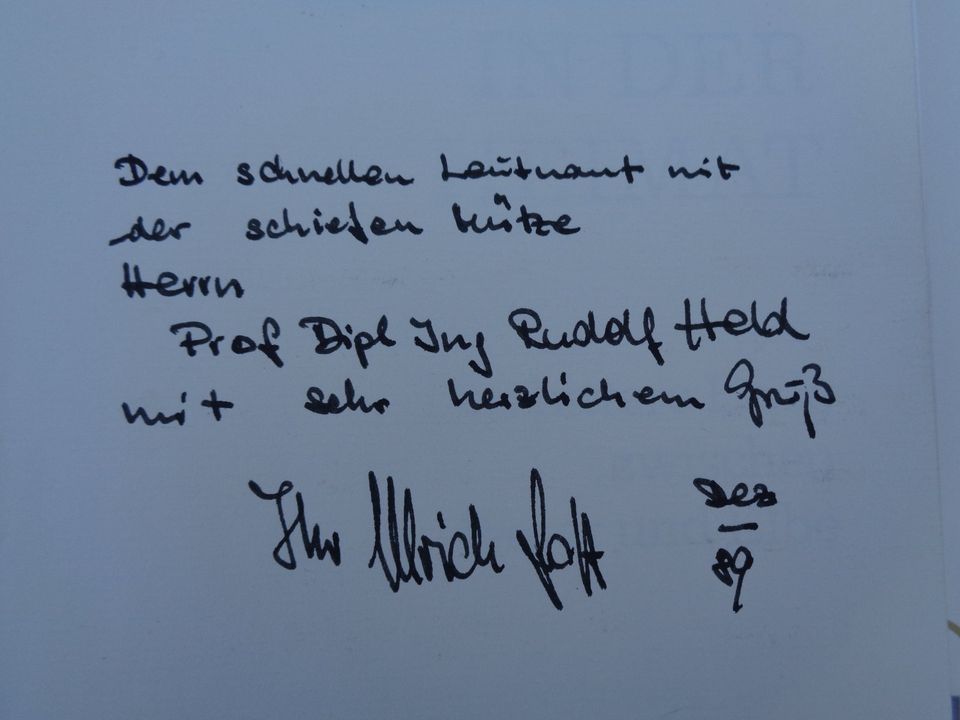 Dem schnellen Leutnant mit
der schiefen Mütze
Herrn
Prof Dipl Ing Rudolf Held
mit sehr herzlichem Gruß
Ihr Ulrich
Dez
89